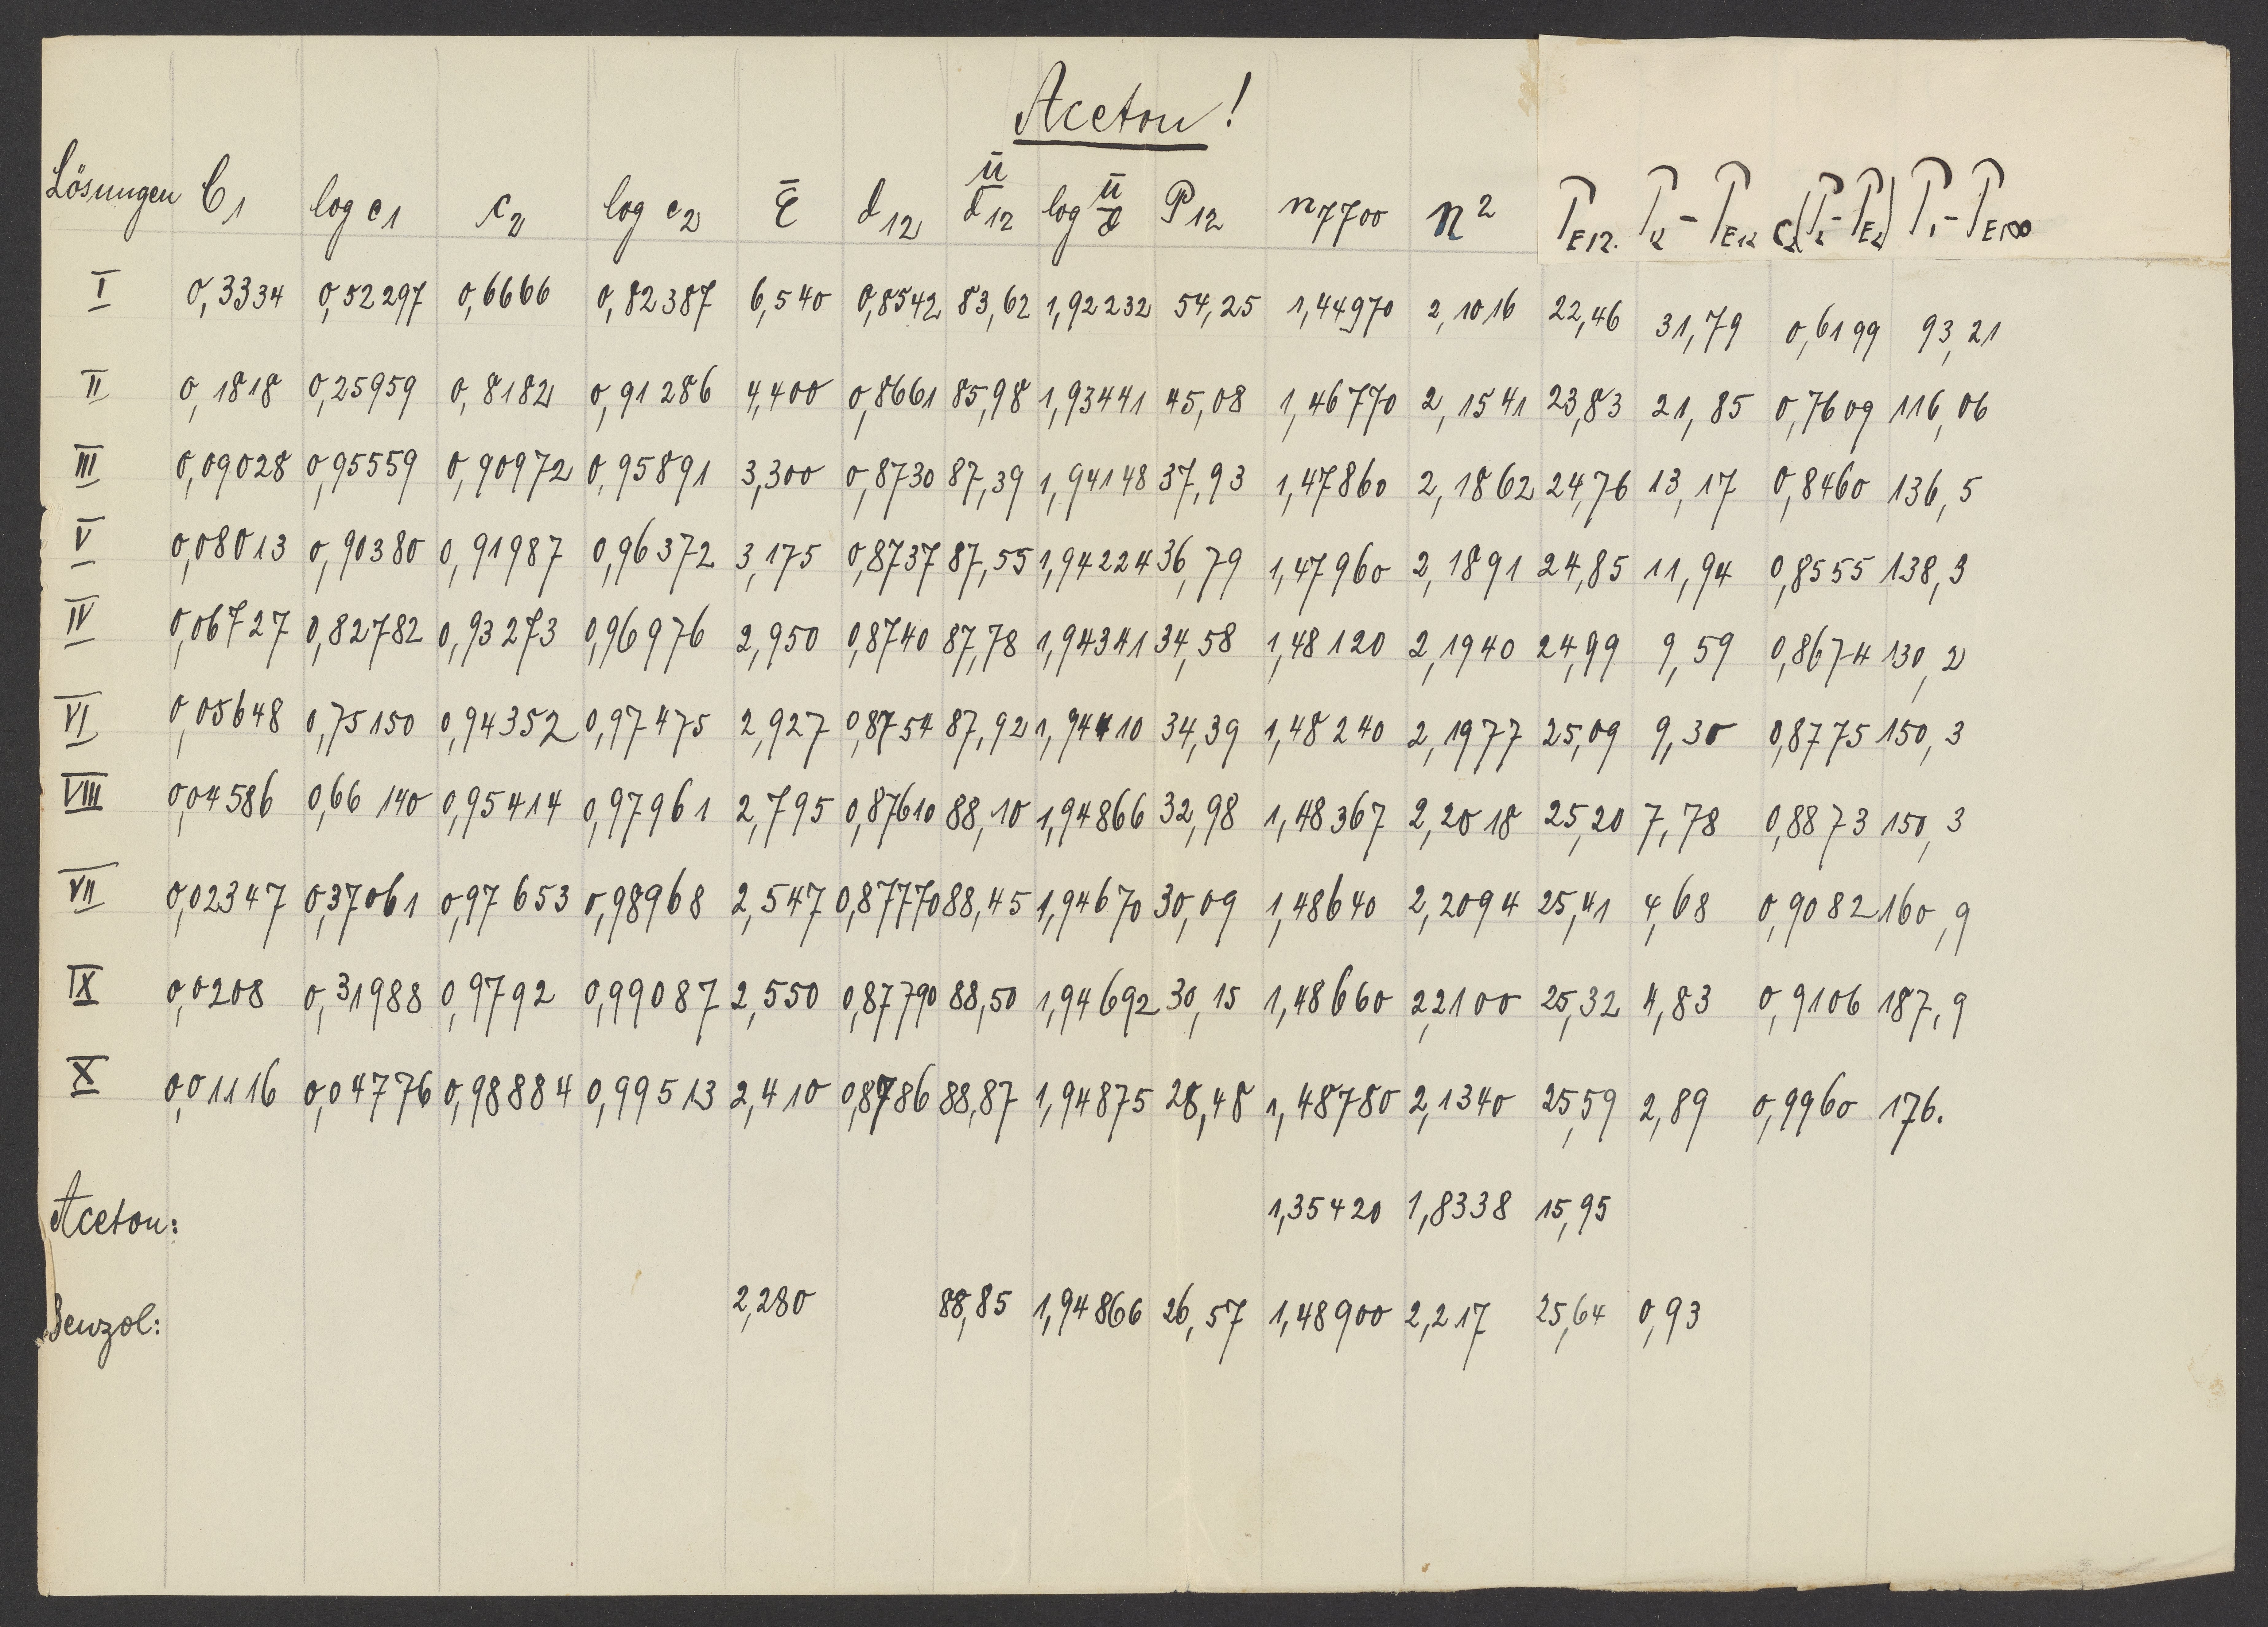 Aceton!
Lösungen C1 log c1 c2 log c2 ε̄ d12 ū/d12 log ū/d P12 n7700 n² PE12. P12-PE12 c2(P2-PE2) P1-PE1∞
I 0,3334 0,52297 0,6666 0,82387 6,540 0,8542 83,62 1,92232 54,25 1,44970 2,1016 22,46 31,79 0,6199 93,21
II 0,1818 0,25959 0,8182 0,91286 4,400 0,8661 85,98 1,93441 45,08 1,46770 2,1541 23,83 21,85 0,7609 116,06
III 0,09028 0,95559 0,90972 0,95891 3,300 0,8730 87,39 1,94148 37,93 1,47860 2,1862 24,76 13,17 0,8460 136,5
V 0,08013 0,90380 0,91987 0,96372 3,175 0,8737 87,55 1,94224 36,79 1,47960 2,1891 24,85 11,94 0,8555 138,3
IV 0,06727 0,82782 0,93273 0,96976 2,950 0,8740 87,78 1,94341 34,58 1,48120 2,1940 24,99 9,59 0,8674 130,2
VI 0,05648 0,75150 0,94352 0,97475 2,927 0,8754 87,92 1,94410 34,39 1,48240 2,1977 25,09 9,30 0,8775 150,3
VIII 0,04586 0,66140 0,95414 0,97961 2,795 0,87610 88,10 1,94866 32,98 1,48367 2,2018 25,20 7,78 0,8873 150,3
VII 0,02347 0,37061 0,97653 0,98968 2,547 0,87770 88,45 1,94670 30,09 1,48640 2,2094 25,41 4,68 0,9082 160,9
IX 0,0208 0,31988 0,9792 0,99087 2,550 0,87790 88,50 1,94692 30,15 1,48660 2,2100 25,32 4,83 0,9106 187,9
X 0,01116 0,04776 0,98884 0,99513 2,410 0,8786 88,87 1,94875 28,48 1,48780 2,1340 25,59 2,89 0,9960 176.
Aceton: 1,35420 1,8338 15,95
Benzol: 2,280 88,85 1,94866 26,57 1,48900 2,217 25,64 0,93